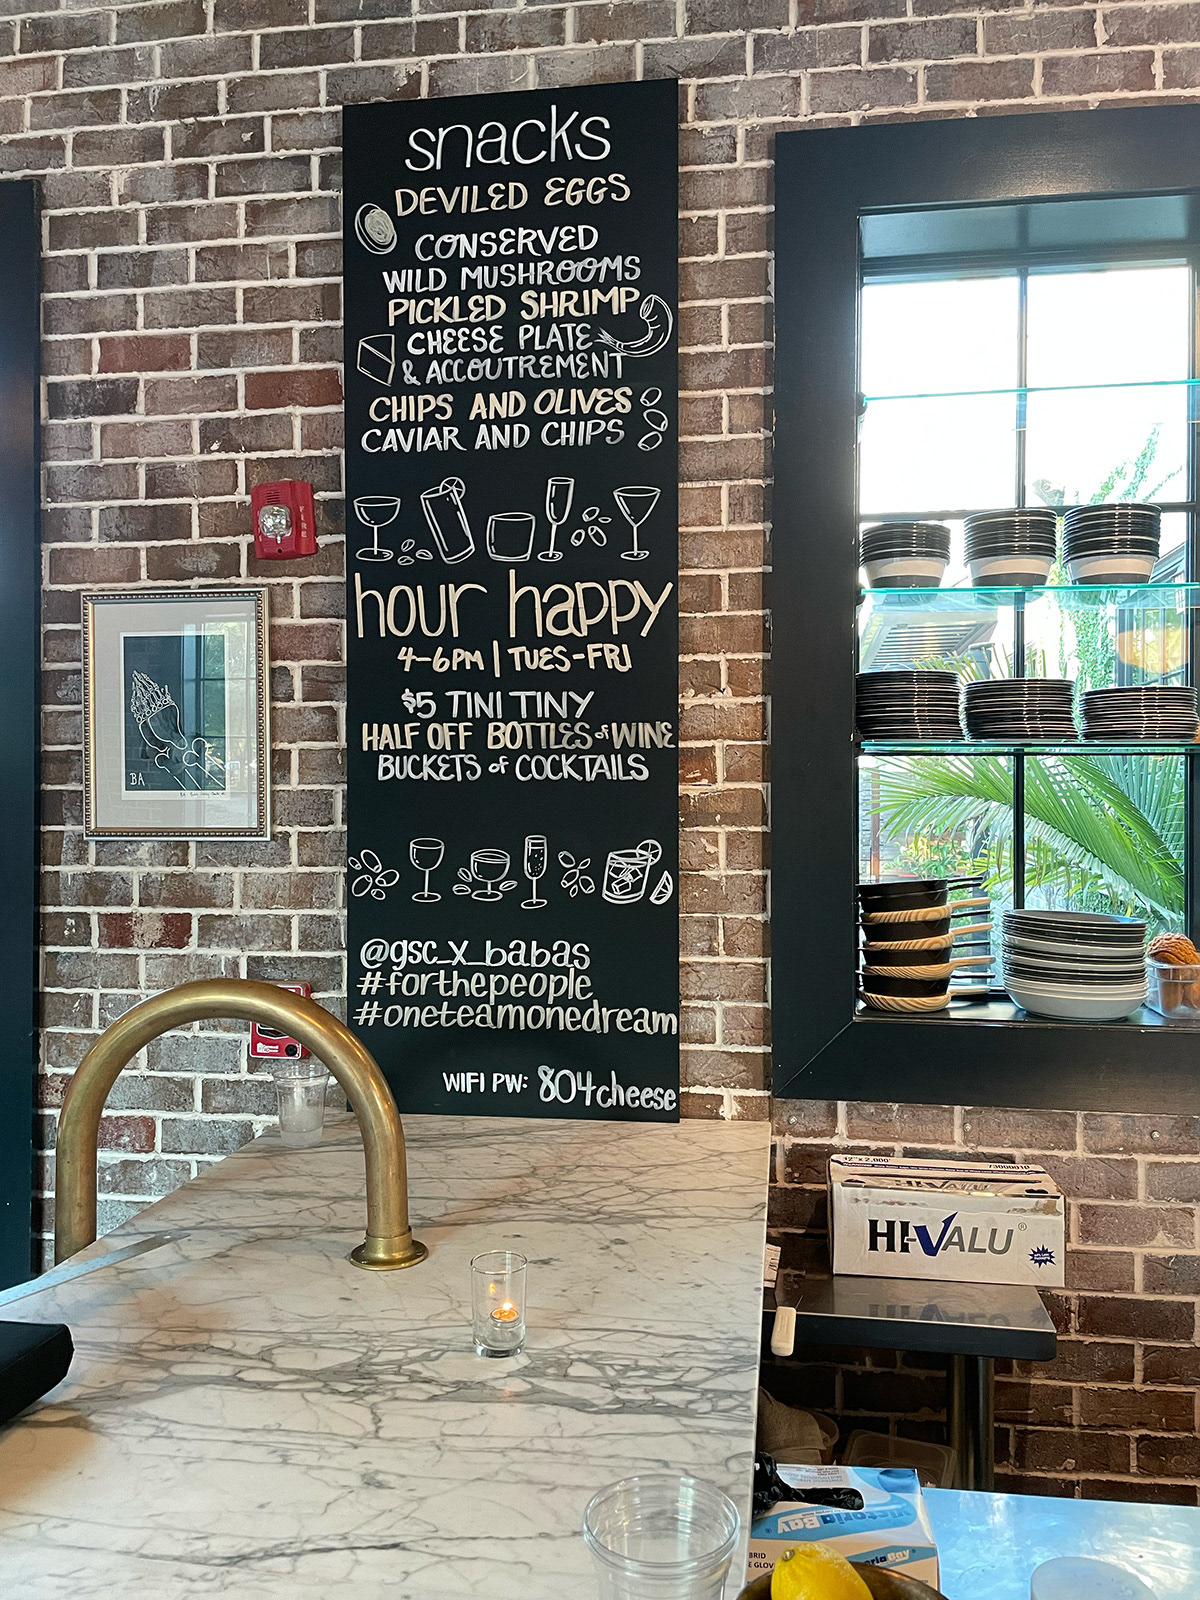 snacks
DEVILED EGGS
CONSERVED
WILD MUSHROOMS
PICKLED SHRIMP
CHEESE PLATE
& ACCOUTREMENT
CHIPS AND OLIVES
CAVIAR AND CHIPS
hour happy
4-6PM | TUES-FRI
$5 TINI TINY
HALF OFF BOTTLES of WINE
BUCKETS of COCKTAILS
@gsc_x_babas
#forthepeople
#oneteamonedream
WIFI PW: 804cheese
FIRE
BA
12" x 2,000'
73000010
HI-VALU
HI-VALU®
Victoria
Bay